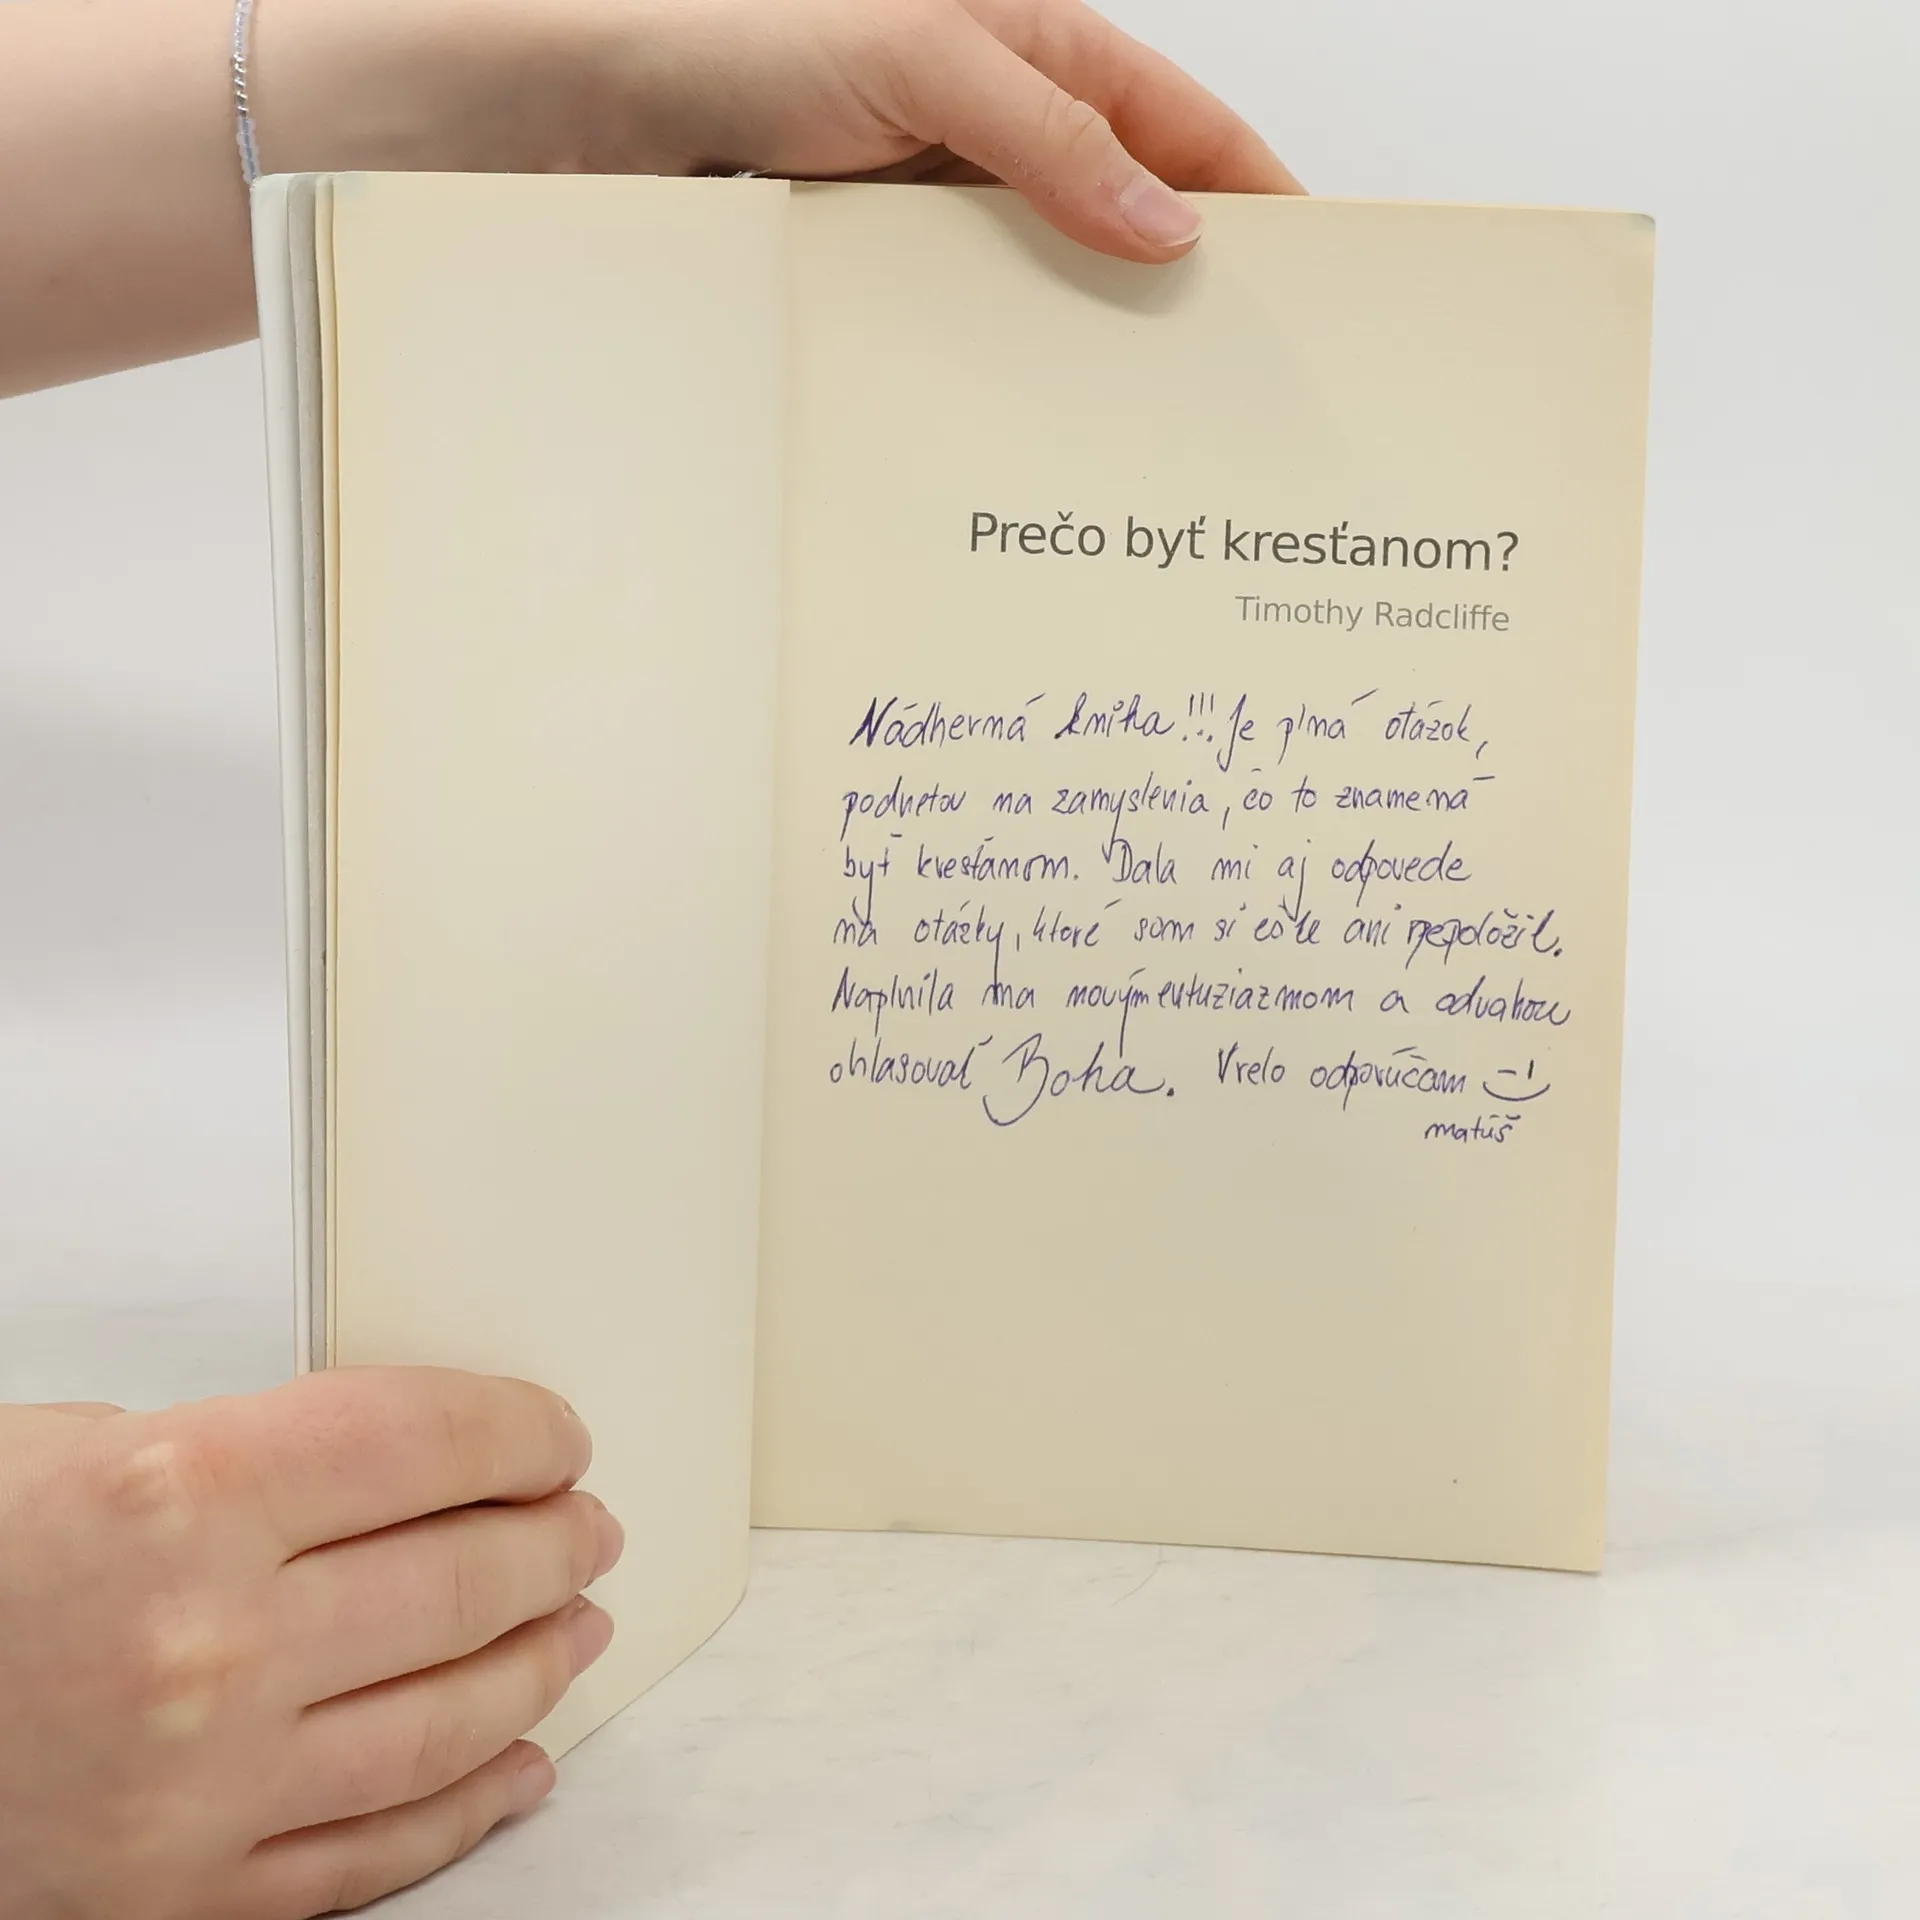 Prečo byť kresťanom?
Timothy Radcliffe
Nádherná kniha!!! Je plná otázok,
podnetov na zamyslenia, čo to znamená
byť kresťanom. Dala mi aj odpovede
na otázky, ktoré som si ešte ani nepoložil.
Naplnila ma novým entuziazmom a odvahou
ohlasovať Boha. Vrelo odporúčam
matúš